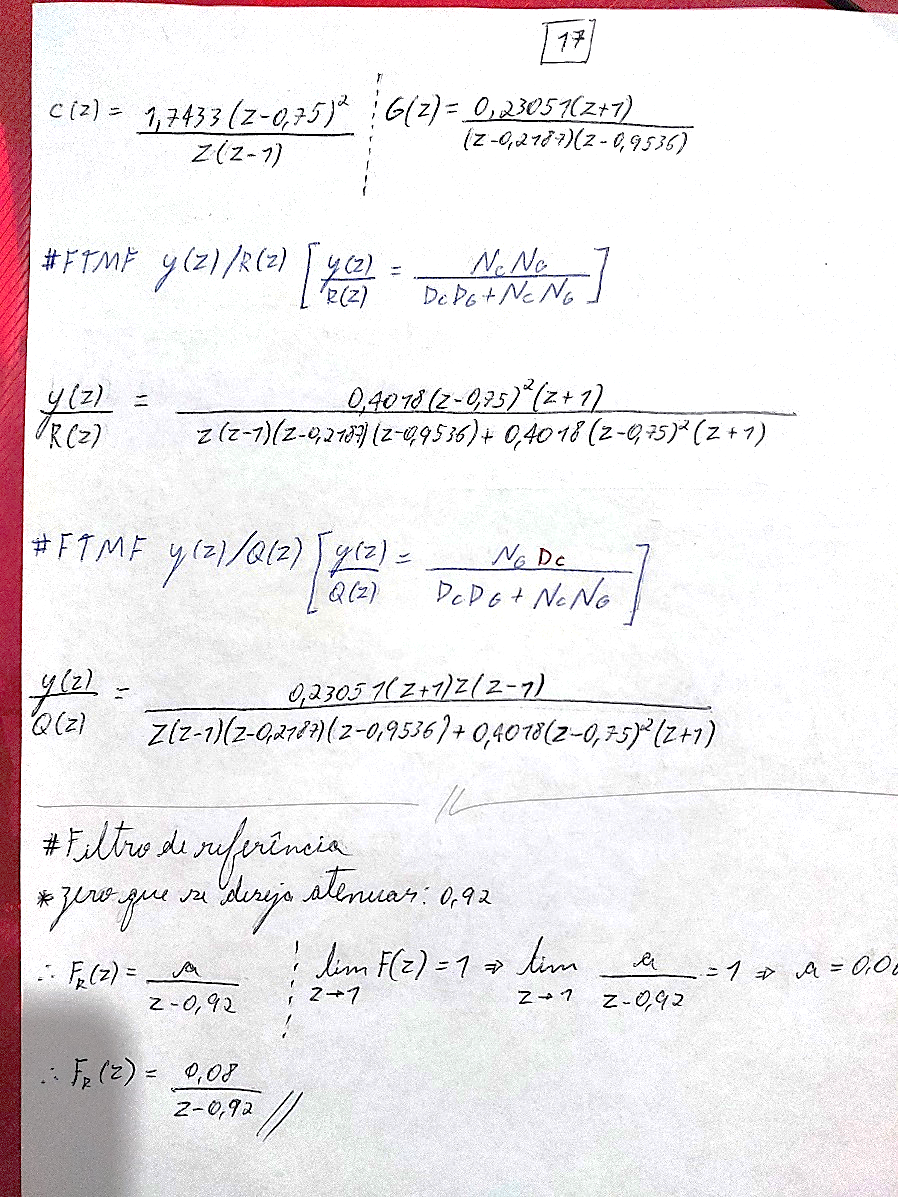 17
C(z) = 1,7433(z-0,75)² / z(z-1) G(z) = 0,23051(z+1) / (z-0,2187)(z-0,9536)
#FTMF y(z)/R(z) [y(z)/R(z) = NcNG / DcDG + NcNG]
y(z)/R(z) = 0,4018(z-0,75)²(z+1) / z(z-1)(z-0,2187)(z-0,9536) + 0,4018(z-0,75)²(z+1)
#FTMF y(z)/Q(z) [y(z)/Q(z) = NG Dc / DcDG + NcNG]
y(z)/Q(z) = 0,23051(z+1)z(z-1) / z(z-1)(z-0,2187)(z-0,9536) + 0,4018(z-0,75)²(z+1)
#Filtro de referência
* zero que se deseja atenuar: 0,92
∴ FR(z) = a / z-0,92 lim z→1 F(z) = 1 ⇒ lim z→1 a / z-0,92 = 1 ⇒ a = 0,0
∴ FR(z) = 0,08 / z-0,92 //